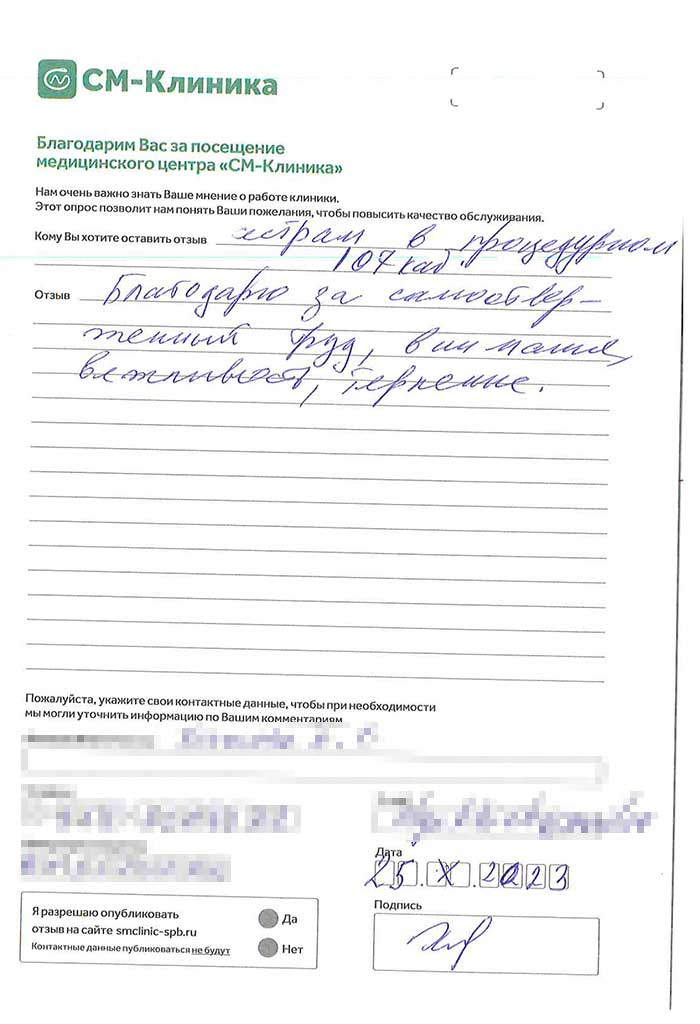 СМ-Клиника
Благодарим Вас за посещение
медицинского центра «СМ-Клиника»
Нам очень важно знать Ваше мнение о работе клиники.
Этот опрос позволит нам понять Ваши пожелания, чтобы повысить качество обслуживания.
Кому Вы хотите оставить отзыв сестрам в процедурном
107 каб.
Отзыв Благодарю за самоотвер-
женный труд, внимание,
вежливость, терпение.
Пожалуйста, укажите свои контактные данные, чтобы при необходимости
мы могли уточнить информацию по Вашим комментариям
Дата
25.X.2023
Я разрешаю опубликовать
отзыв на сайте smclinic-spb.ru
Контактные данные публиковаться не будут
Да
Нет
Подпись